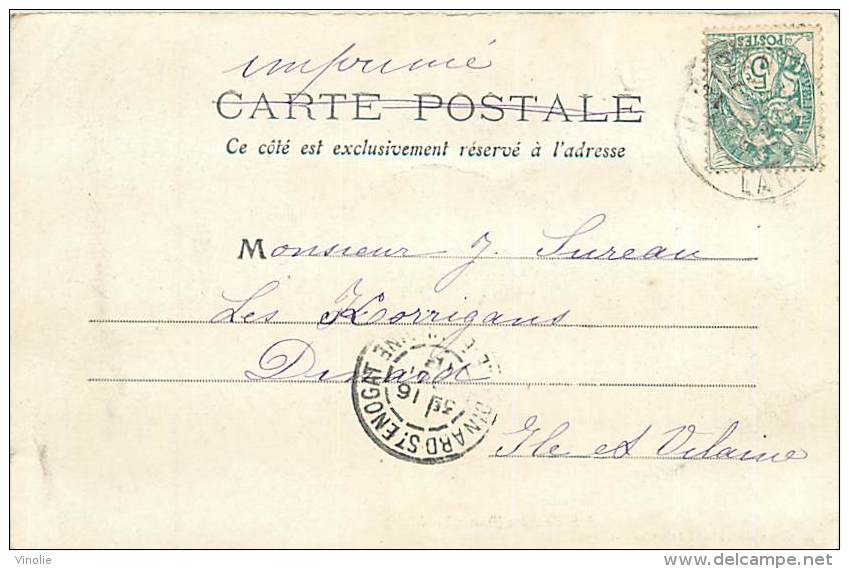 imprimé
CARTE POSTALE
Ce côté est exclusivement réservé à l'adresse
POSTES
5
LA
Monsieur J. Sureau
Les Korrigans
Dinard
DINARD ST ENOGAT
16
Ile et Vilaine
Vinolie
delcampe.net